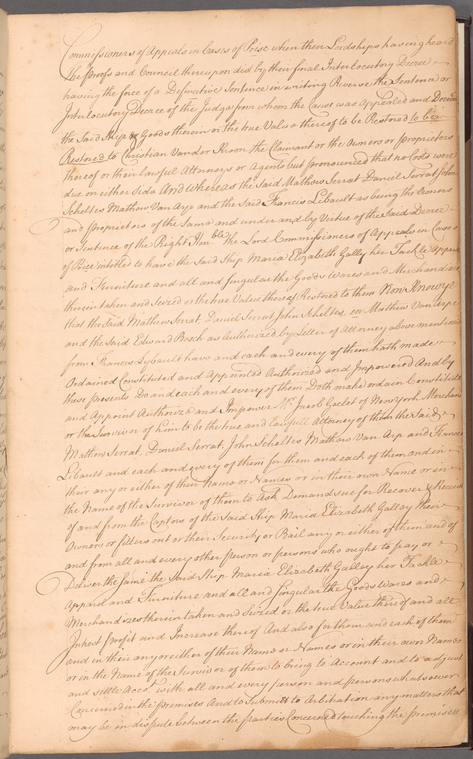 Commissioners of Appeals in Cases of Prise when their Lordships having heard
the proofs and Council thereupon did by their final Interlocutory Decree
having the force of a Definative Sentence in writing Reverse the Sentence or
Interlocutory Decree of the Judge from whom the Cause was Appealed and Decreed
the Said Ship & Goods therein or the true Value thereof to be Restored to be
Restored to Christian Vander Hroom the Claimant or the owners or proprietors
thereof or their Lawfull Attorneys or Agents but pronounced that no Costs were
due on either side And Whereas the Said Mathew Serrat Daniel Serrat John
Scholtes Mathew Van Arp and the Said Francis Libault as being the owners
and proprietors of the Same and under and by Virtue of the Said Decree
or Sentence of the Right Honble the Lord Commissioners of Appeals in Cases
of Prise intitled to have the Said Ship Maria Elizabeth Galley her Tackle Apparel
and Furniture and all and Singular the Goods Wares and Merchandizes
therein taken and Seized or the true Value thereof Restored to them Now Know ye
that the Said Mathew Serrat Daniel Serrat John Sholtes Mathew Van Arp
and the Said Edward Bosch as Authorized by Letter of Attorney abovementioned
from Francis Lybault have and each and every of them hath made
Ordained Constituted and Appointed Authorized and Impowered And by
these presents Do and each and every of them Doth make ordain Constitute
and Appoint Authorize and Impower Mr Jacob Goelet of New York Merchant
or the Survivor of them to be the true and Lawfull Attorney of them the Said
Mathew Serrat, Daniel Serrat, John Scholtes Mathew Van Arp and Francis
Libault and each and every of them for them and each of them and in
their any or either of their Name or Names or in their own Name or in
the Name of the Survivor of them to Ask Demand sue for Recover & Receive
of and from the Captors of the Said Ship Maria Elizabeth Galley their
Owners or fitters out or their Security or Bail any or either of them and of
and from all and every other person or persons who ought to pay or
Deliver the Same the Said Ship Maria Elizabeth Galley her Tackle
Apparel and Furniture and all and Singular the Goods Wares and
Merchandizes therein taken and Seized or the true Value thereof and all
Interest profit and Increase thereof And also for them and each of them
and in their any or either of their Name or Names or in their own Names
or in the Name of the Survivor of them to bring to Account and to adjust
and settle Accots with all and every person and persons whatsoever
Concerned in the premises And to Submitt to Arbitration any matters that
may be in dispute between the parties Concerned touching the premises